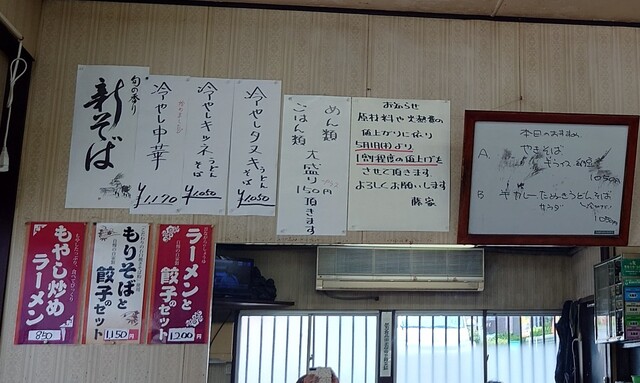 旬の香り
新そば
冷やし中華
¥1,170
冷やしキツネうどんそば
¥1,050
冷やしタヌキうどんそば
¥1,050
めん類
ごはん類
大盛り150円頂きます
お知らせ
原材料や光熱費の
値上がりに依り
5月1日(木)より
1割程度の値上げを
させて頂きます。
よろしくお願いします
藤家
本日のおすすめ
A.
やきそば
ギョウザ
1050円
B
サラダ
もやし炒め
ラーメン
850
もりそばと
餃子のセット
1,150円
ラーメンと
餃子のセット
1200円